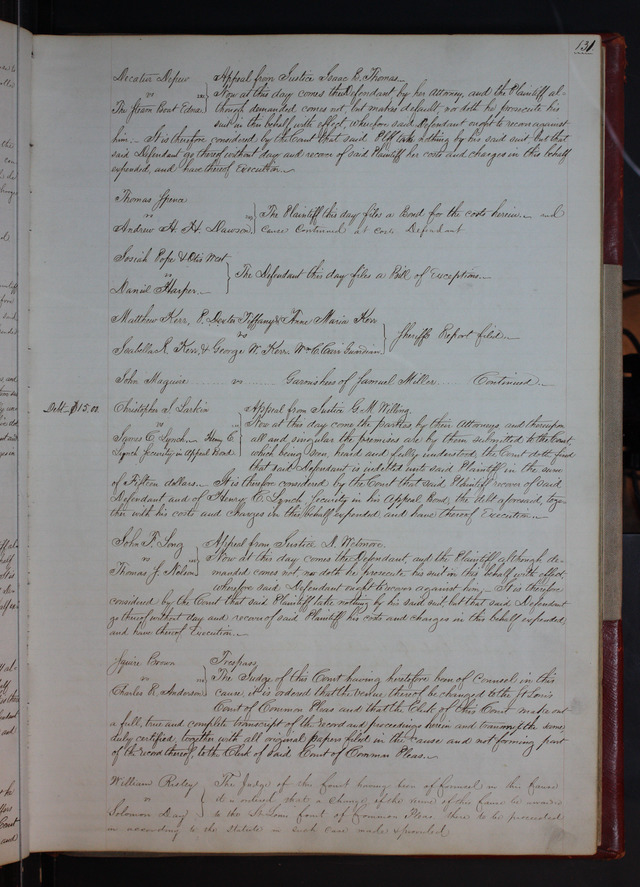 131
Decatur Depew } Appeal from Justice Isaac B. Thomas.
vs } Now at this day comes the Defendant by her Attorney, and the Plaintiff al-
The Steam Boat Edna } though demanded comes not, but makes default, nor doth he prosecute his
suit in this behalf with effect, wherefore said Defendant ought to recover against
him:— It is therefore considered by the Court that said Plff take nothing by his said suit, but that
said Defendant go thereof without day and recover of said Plaintiff her costs and charges in this behalf
expended, and have thereof Execution.
Thomas Spence
vs } The Plaintiff this day files a Bond for the costs herein. and
Andrew H. H. Dawson } cause continued at costs Defendant
Josiah Pope & Otis West
vs } The Defendant this day files a Bill of Exceptions.
Daniel Harper.
Matthew Kerr, P. Dexter Tiffany & Anne Maria Kerr
vs } Sheriffs Report filed.
Isabella R. Kerr, & George W. Kerr. Wm C. Carr Guardian
John Maguire vs Garnishees of Samuel Miller Continued.
Debt $15.00
Christopher S. Larkin } Appeal from Justice G. M.
vs } Now at this day come the parties by their Attorneys, and thereupon
James C. Lynch Henry C. } all and singular the premises are by them submitted to the Court,
Lynch Security in Appeal Bond } which being seen, heard and fully understood, the Court doth find
that said Defendant is indebted unto said Plaintiff in the sum
of Fifteen dollars. It is therefore considered by the Court that said Plaintiff recover of said
Defendant and of Henry C. Lynch Security in his Appeal Bond, the debt aforesaid, toge-
ther with his costs and charges in this behalf expended and have thereof Execution.
John F. Long } Appeal from Justice A. Wetmore.
vs } Now at this day comes the Defendant, and the Plaintiff although de-
Thomas J. } manded comes not, nor doth he prosecute his suit in this behalf with effect,
wherefore said Defendant ought to recover against him, It is therefore
considered by the Court that said Plaintiff take nothing by his said suit, but that said Defendant
go thereof without day and recover of said Plaintiff his costs and charges in this behalf expended,
and have thereof Execution.
Squire Brown } Trespass,
vs } The Judge of this Court having heretofore been of Counsel in this
Charles R. Anderson } cause, it is ordered that the venue thereof be changed to the St Louis
Court of Common Pleas and that the Clerk of this Court make out
a full, true and complete transcript of the record and proceedings herein and transmit the same,
duly certified, together with all original papers filed in the cause and not forming part
of the record thereof, to the Clerk of said Court of Common Pleas.
William Risley } The Judge of this Court having been of Counsel in this Cause
vs } it is ordered that a change of the venue of this Cause be awarded
Solomon Day } to the St Louis Court of Common Pleas there to be proceeded
in according to the Statute in such case made & provided